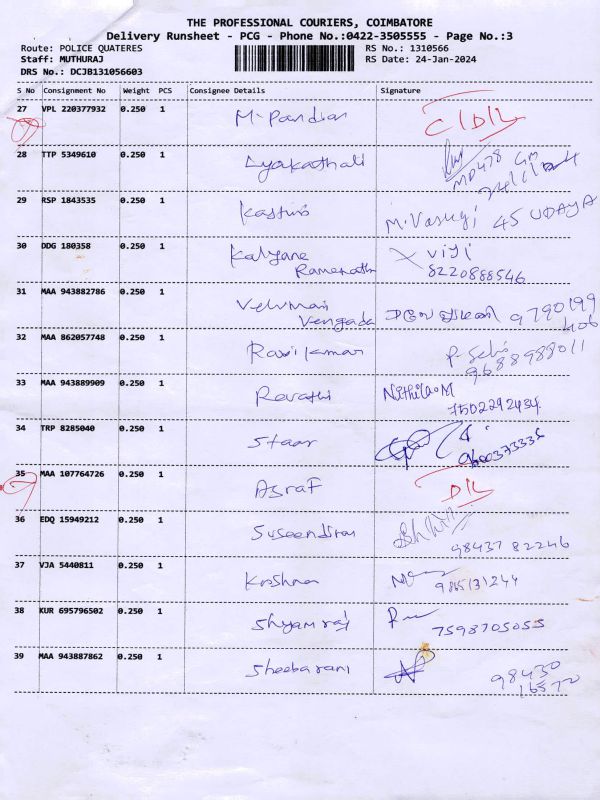 THE PROFESSIONAL COURIERS, COIMBATORE
Delivery Runsheet - PCG - Phone No.:0422-3505555 - Page No.:3
Route: POLICE QUATERES RS No.: 1310566
Staff: MUTHURAJ RS Date: 24-Jan-2024
DRS No.: DCJB131056603
S No Consignment No Weight PCS Consignee Details Signature
27 VPL 220377932 0.250 1 M. Pandian
28 TTP 5349610 0.250 1
29 RSP 1843535 0.250 1 M. Vasugi 45 UDAYA
30 DDG 180358 0.250 1 Kalyane Viji
8220888546
31 MAA 943882786 0.250 1 Velvman 9790199
Vengada 406
32 MAA 862057748 0.250 1 Ravi Kumar
9688988011
33 MAA 943889909 0.250 1 Revathi Nithila M
7502292434
34 TRP 8285040 0.250 1 Staar
9600373335
35 MAA 107764726 0.250 1 Asraf D/L
36 EDQ 15949212 0.250 1 Suseendiran
98437 82246
37 VJA 5440811 0.250 1 Krishna 9865131244
38 KUR 695796502 0.250 1 Shyam raj 7598705055
39 MAA 943887862 0.250 1 Sheeba rani 98430
16572